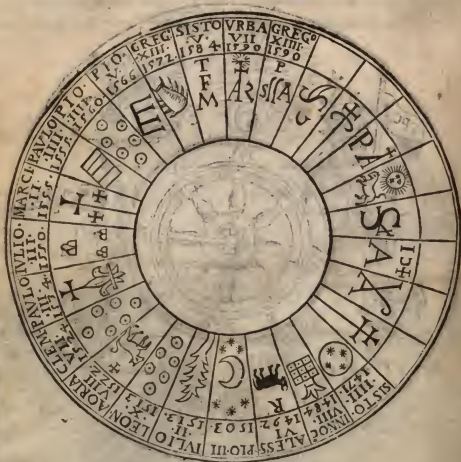 SISTO
·IIII·
1471·
INNOC
VIII·
1484
ALESS
VI
1492
PIO·III
1503
IVLIO
II
1513·
LEON
X
1513
CLEM
VII
1524
PAVLO
III
IVLIO·
III
1550·
MARCE
II·
1555·
PAVLO
IIII·
1555·
PIO·
IIII·
1560
PIO·
V·
1566
GREG
XIII·
1572·
SISTO
·V·
1584
VRBA
VII
1590
GREGº
XIIII·
1590
T
F
M
I
AR
P
SSA
PA
S
A
CI
R